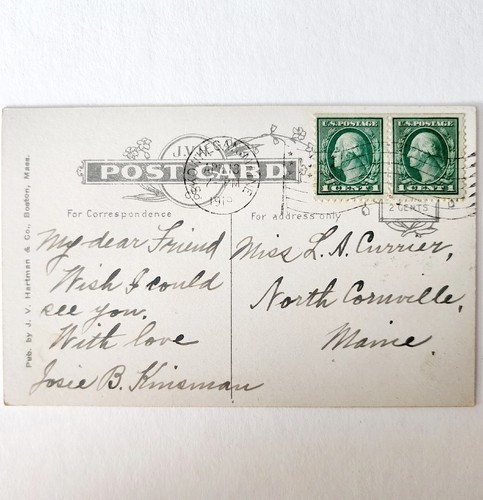 U.S. POSTAGE U.S. POSTAGE
1 CENT 1 1 CENT 1
J.V.
POST CARD
SKOWHEGAN, ME
191
2 CENTS
For Correspondence
For address only
My dear Friend
Wish I could
see you.
With love
Josie B. Kinsman
Miss L. A. Currier,
North Cornville,
Maine.
Pub. by J. V. Hartman & Co., Boston, Mass.